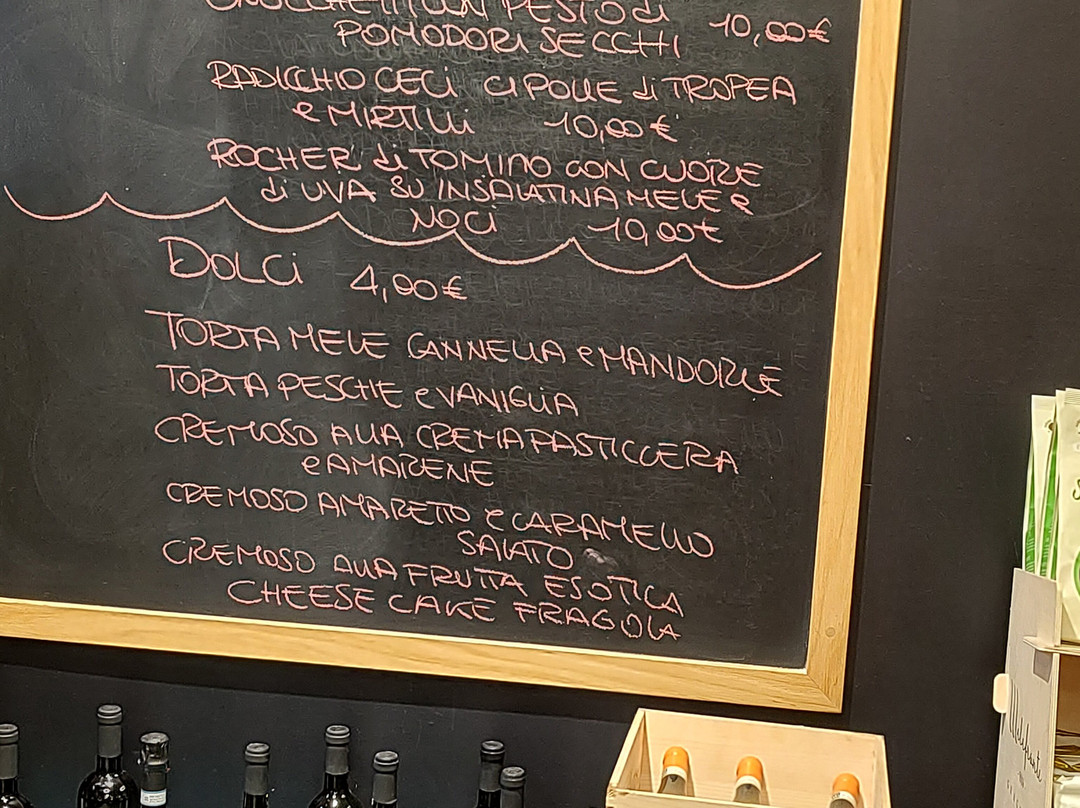 GNOCCHETTI CON PESTO di
POMODORI SECCHI 10,00€
RADICCHIO CECI CIPOLLE di TROPEA
e MIRTILLI 10,00€
ROCHER di TOMINO CON CUORE
di UVA SU INSALATINA MELE e
NOCI 10,00€
DOLCI 4,00€
TORTA MELE CANNELLA e MANDORLE
TORTA PESCHE e VANIGLIA
CREMOSO ALLA CREMA PASTICCERA
e AMARENE
CREMOSO AMARETTO e CARAMELLO
SALATO
CREMOSO ALLA FRUTTA ESOTICA
CHEESE CAKE FRAGOLA